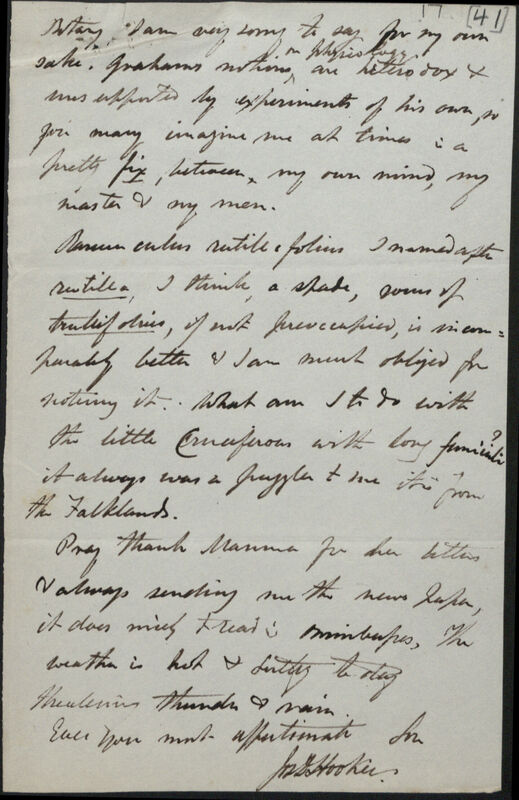 17. [41]
Botany, I am very sorry to say for my own
sake. Grahams notions on physiology are heterodox &
unsupported by experiments of his own, so
you may imagine me at times in a
pretty fix, between my own mind, my
master & my men.
Ranunculus rutilifolius I named after
rutilla, I think, a spade, yours of
trullifolius, if not preoccupied, is incom=
parably better & I am much obliged for
noticing it. What am I to do with
the little Cruciferous with long funiculi?
it always was a puzzler to me its from
the Falklands.
Pray thank Mamma for her letters
& always sending me the news paper,
it does nicely to read in omnibuses, The
weather is hot & sultry to day
threatening thunder & rain
Ever your most affectionate Son
Jos D Hooker.